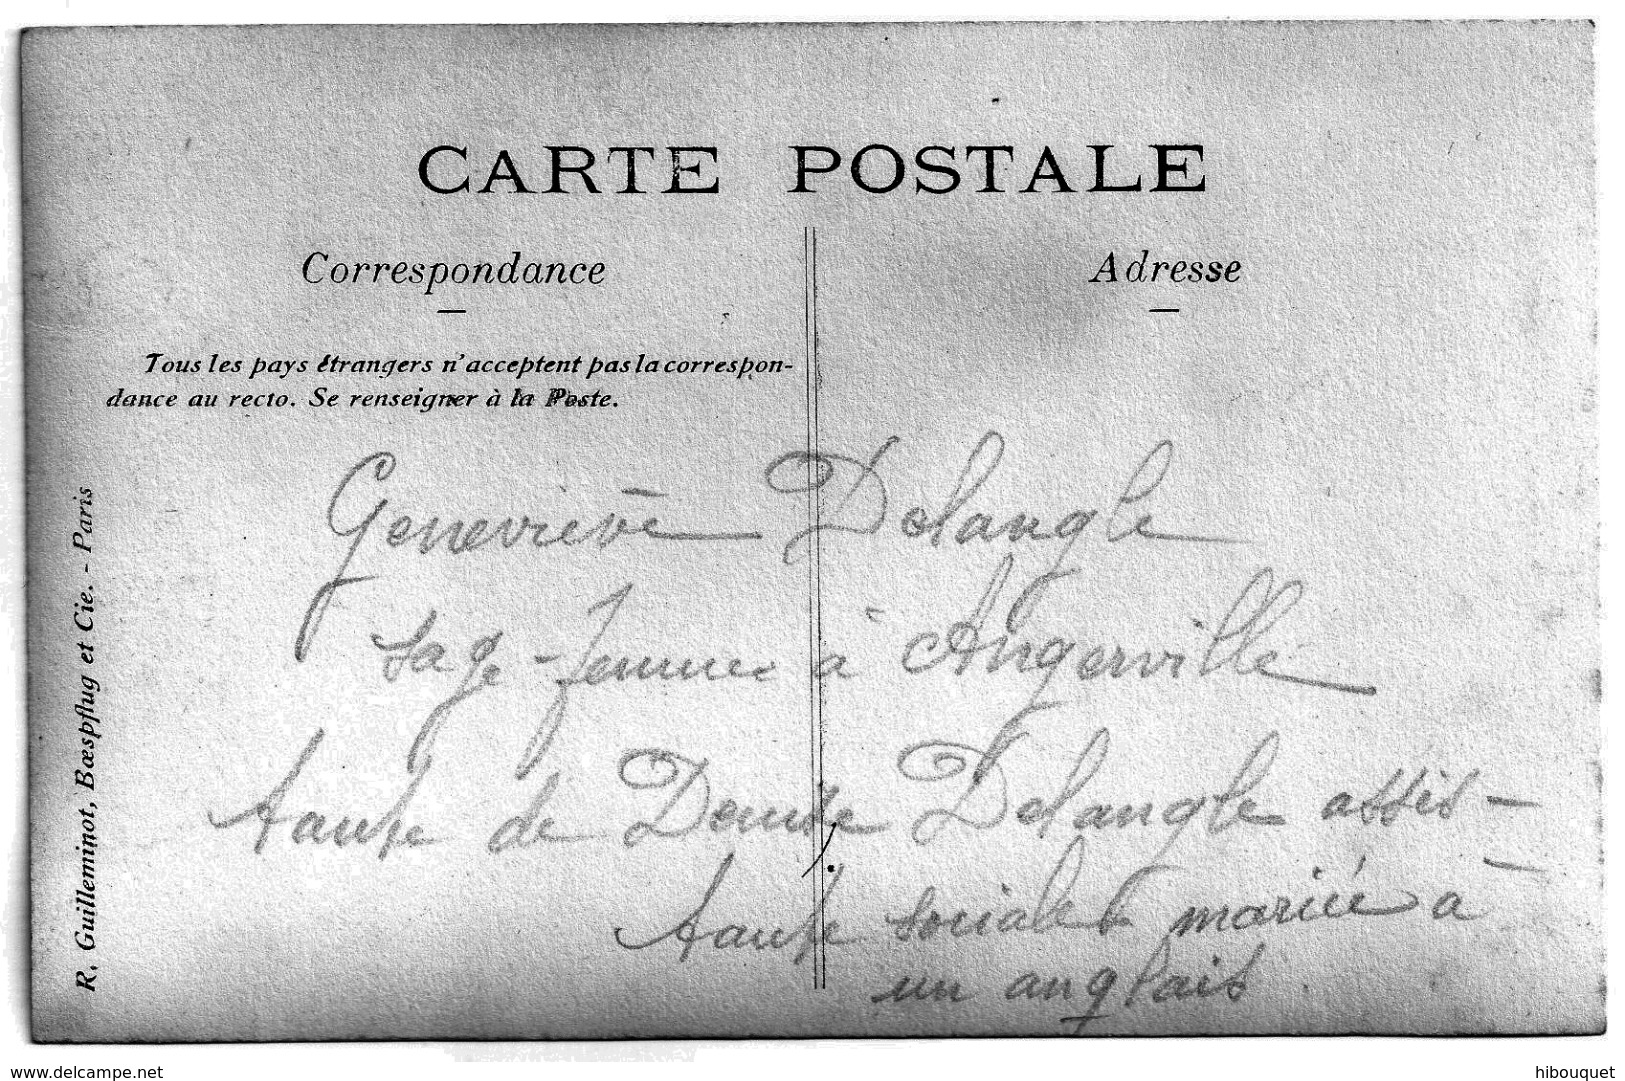 CARTE POSTALE
Correspondance
Adresse
Tous les pays étrangers n'acceptent pas la correspon-
dance au recto. Se renseigner à la Poste.
R. Guilleminot, Bœspflug et Cie. - Paris
Geneviève Delangle
sage-femme à Angerville
tante de Denise Delangle assis-
tante sociale mariée à
un anglais
www.delcampe.net
hibouquet